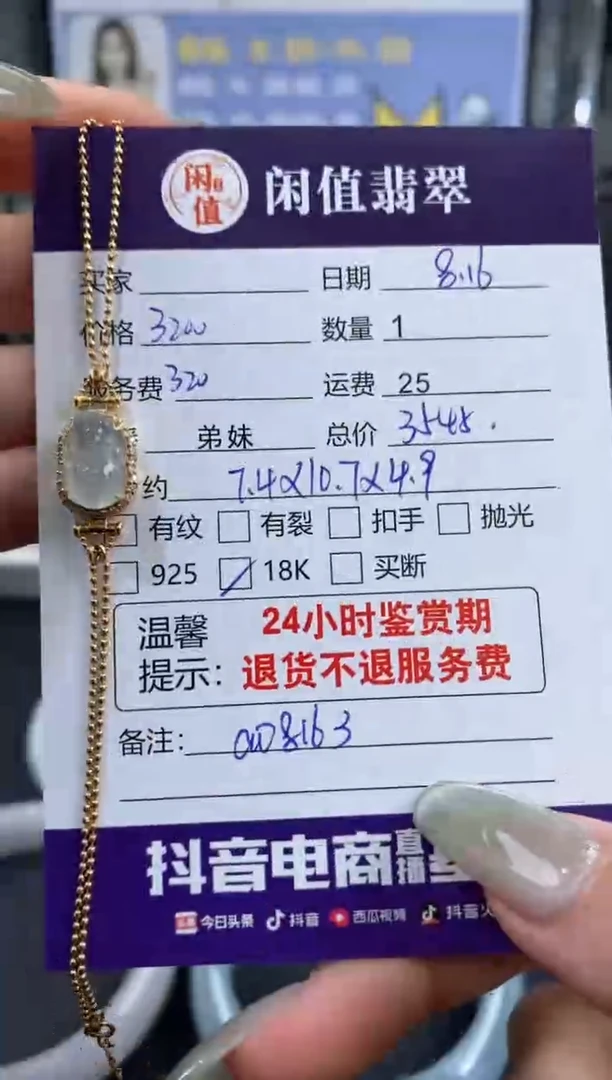 闲值 闲值翡翠
买家 日期 8.16
价格 3200 数量 1
务费 320 运费 25
弟妹 总价 3545.
约 7.4x10.7x4.9
有纹 有裂 扣手 抛光
925 18K 买断
温馨提示: 24小时鉴赏期
退货不退服务费
备注: 8163
抖音电商直播
今日头条 抖音 西瓜视频 抖音火